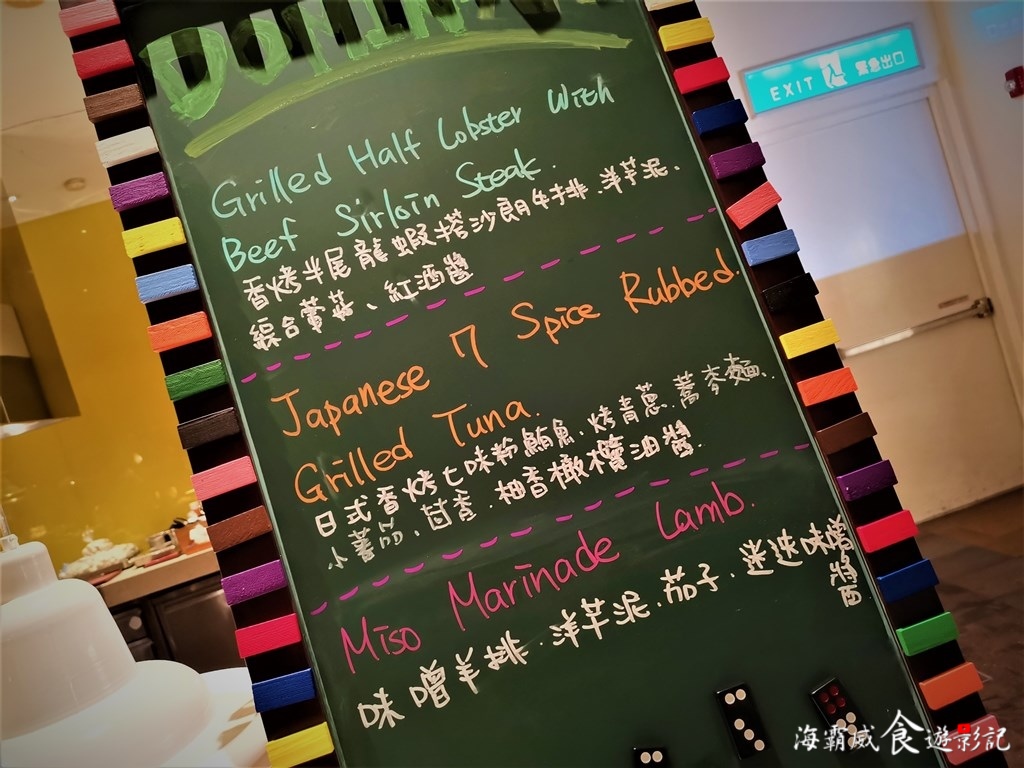 EXIT 緊急出口
Grilled Half Lobster With
Beef Sirloin Steak.
香烤半尾龍蝦搭沙朗牛排、洋芋泥、
綜合蕈菇、紅酒醬
Japanese 7 Spice Rubbed.
Grilled Tuna.
日式香烤七味粉鮪魚、烤青蔥、蕎麥麵、
小薯品、甘杏、柚香橄欖油醬.
Miso Marinade Lamb.
味噌羊排、洋芋泥、茄子、迷迭味噌
醬
海霸威食遊影記